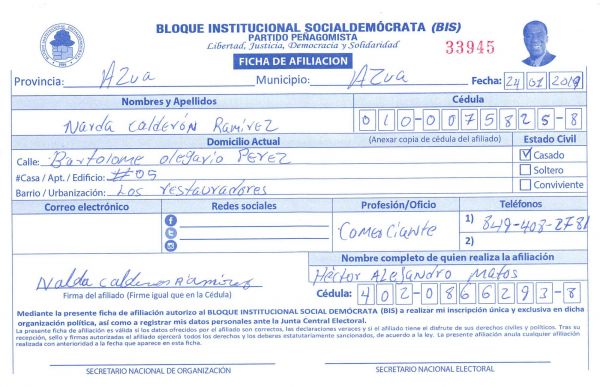 BLOQUE INSTITUCIONAL SOCIALDEMÓCRATA (BIS)
PARTIDO PEÑAGOMISTA
Libertad, Justicia, Democracia y Solidaridad
33945
FICHA DE AFILIACION
Provincia: AZUA Municipio: AZUA Fecha: 24 01 2019
Nombres y Apellidos Cédula
Narda Calderón Ramírez 010-0075825-8
Domicilio Actual (Anexar copia de cédula del afiliado) Estado Civil
Calle: Bartolome olegario PEREZ Casado
#Casa / Apt. / Edificio: #05 Soltero
Barrio / Urbanización: Los restauradores Conviviente
Correo electrónico Redes sociales Profesión/Oficio Teléfonos
COMERCIANTE 1) 849-408-2781
2)
Nombre completo de quien realiza la afiliación
Nalda Calderon Ramirez Héctor ALEJANDRO MATOS
Firma del afiliado (Firme igual que en la Cédula) Cédula: 402-0866293-8
Mediante la presente ficha de afiliación autorizo al BLOQUE INSTITUCIONAL SOCIAL DEMÓCRATA (BIS) a realizar mi inscripción única y exclusiva en dicha
organización política, así como a registrar mis datos personales ante la Junta Central Electoral.
La presente ficha de afiliación es válida si los datos ofrecidos por el afiliado son correctos, las declaraciones veraces y si el afiliado tiene el disfrute de sus derechos civiles y políticos. Tras su
recepción, sello y firmas autorizadas el afiliado ejercerá todos los derechos y los deberes estatutariamente sancionados, de acuerdo a la ley. La presente afiliación anula cualquier afiliación
realizada con anterioridad a la fecha que aparece en esta ficha.
SECRETARIO NACIONAL DE ORGANIZACIÓN SECRETARIO NACIONAL ELECTORAL